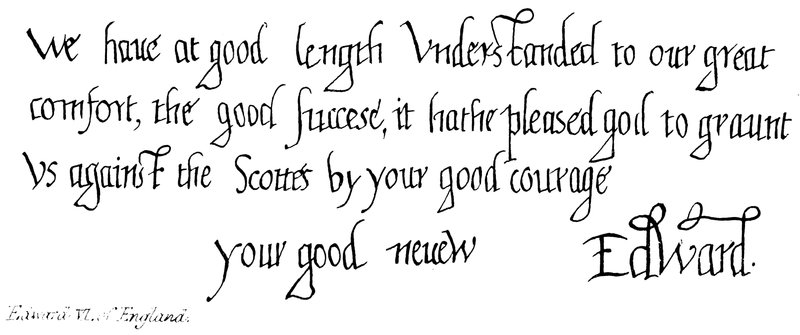 We haue at good length Vnderstanded to our great
comfort, the good succese, it hathe pleased god to graunt
Vs against the Scottes by your good courage
your good neuew Edward.
Edward VI. of England.